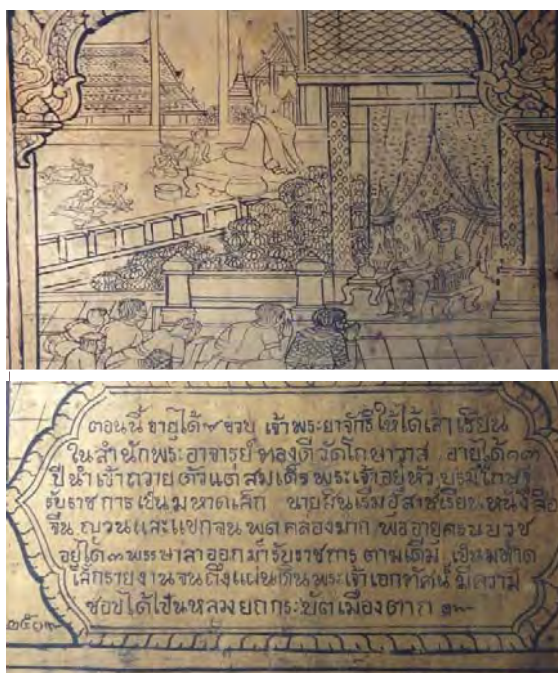 ตอนนี้ อายุได้ ๙ ขวบ เจ้าพระยาจักรีให้ได้เล่าเรียน
ในสำนักพระอาจารย์ทองดีวัดโกษาวาส อายุได้๑๓
ปีนำเข้าถวายตัวแด่สมเด็จพระเจ้าอยู่หัว บรมโกษฐ์
รับราชการเป็นมหาดเล็ก นายสินเริ่มอุสาห์เรียนหนังสือ
จีน ญวนและแขกจนพูดคล่องมาก พออายุครบบวช
อยู่ได้๓พรรษาลาออกมารับราชการตามเดิม เป็นมหาด
เล็กรายงานจนถึงแผ่นดินพระเจ้าเอกทัศน์ มีความ
ชอบได้เป็นหลวงยกกระบัตเมืองตาก